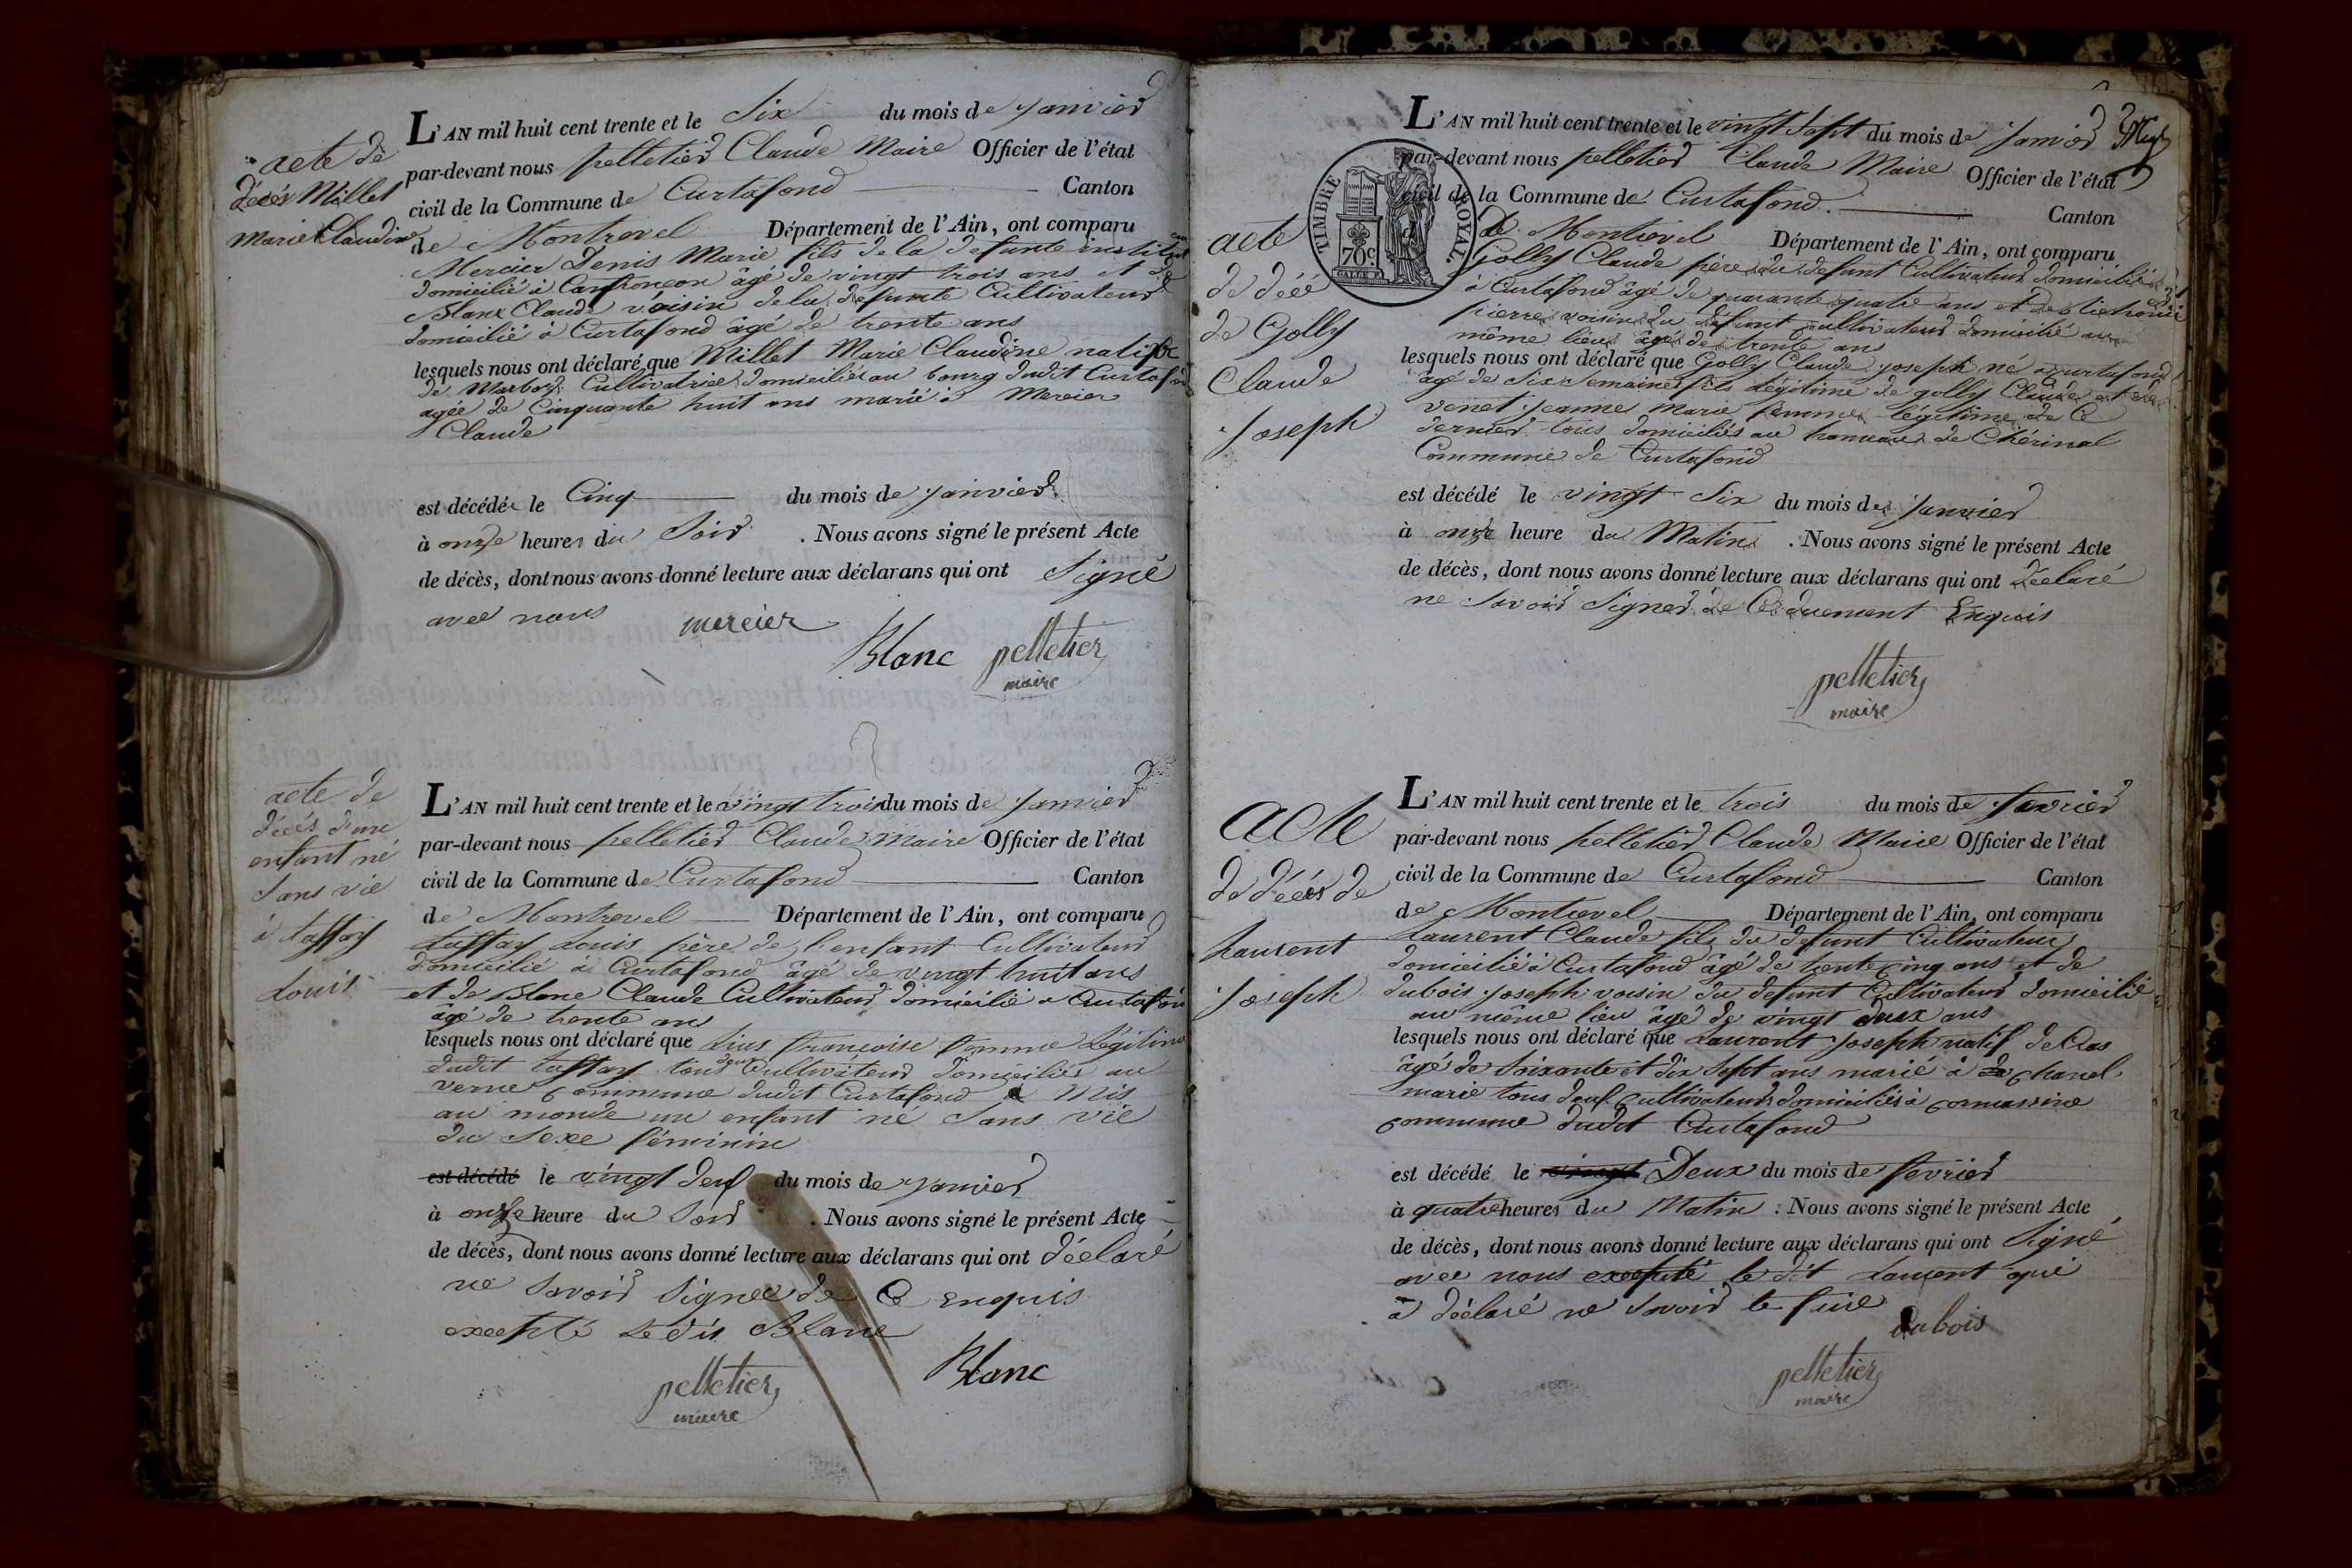 acte de
décés Millet
Marie Claudine
L'AN mil huit cent trente et le Six du mois de janvier
par-devant nous pelletier Claude Maire Officier de l'état
civil de la Commune de Curtafond Canton
de Montrevel Département de l'Ain, ont comparu
Mercier Denis Marie fils de la defunte
domicilié à âgé de vingt trois ans et de
Blanc Claude voisin de la defunte Cultivateur
domicilié à Curtafond âgé de trente ans
lesquels nous ont déclaré que Millet Marie Claudine native
de Marboz Cultivatrice domiciliée au bourg dudit Curtafond
agée de Cinquante huit ans marié à Mercier
Claude
est décédée le Cinq du mois de janvier
à onze heures du Soir . Nous avons signé le présent Acte
de décès, dont nous avons donné lecture aux déclarans qui ont Signé
avec nous mercier
Blanc pelletier
maire
acte de
décés d'une
enfant né
Sans vie
à taffay
Louis
L'AN mil huit cent trente et le vingt trois du mois de janvier
par-devant nous pelletier Claude Maire Officier de l'état
civil de la Commune de Curtafond Canton
de Montrevel Département de l'Ain, ont comparu
taffay Louis père de l'enfant Cultivateur
domicilié à Curtafond âgé de vingt huit ans
et de Blanc Claude Cultivateur domicilié a Curtafond
âgé de trente ans
lesquels nous ont déclaré que françoise femme Légitime
dudit taffay tous deux Cultivateur domiciliés au
verne commune dudit Curtafond a Mis
au monde un enfant né Sans vie
du Sexe féminin
est décédé le vingt deux du mois de janvier
à onze heure du Soir . Nous avons signé le présent Acte
de décès, dont nous avons donné lecture aux déclarans qui ont déclaré
ne Savoir Signer de Ce enquis
excepté Ledit Blanc
pelletier Blanc
maire
TIMBRE ROYAL
70c
acte
de décé
de Golly
Claude
Joseph
L'AN mil huit cent trente et le vingt Sept du mois de janvier
par-devant nous pelletier Claude Maire Officier de l'état
civil de la Commune de Curtafond Canton
de Montrevel Département de l'Ain, ont comparu
Golly Claude père du defunt Cultivateur domicilié
à Curtafond âgé de quarante quatre ans et de
pierre voisin du défunt cultivateur domicilié au
même lieu âgé de trente ans
lesquels nous ont déclaré que Golly Claude joseph né a curtafond
âgé de Six Semaines fils Légitime de golly Claude et de
venet jeanne Marie femme légitime de Ce
dernier tous domiciliés au hameau de Chérinal
Commune de Curtafond
est décédé le vingt Six du mois de janvier
à onze heure du Matin . Nous avons signé le présent Acte
de décès, dont nous avons donné lecture aux déclarans qui ont déclaré
ne Savoir Signer de Ce duement Enquis
pelletier
maire
acte
de décés de
Laurent
Joseph
L'AN mil huit cent trente et le trois du mois de fevrier
par-devant nous pelletier Claude Maire Officier de l'état
civil de la Commune de Curtafond Canton
de Montrevel Département de l'Ain, ont comparu
Laurent Claude fils du defunt Cultivateur
domicilié à Curtafond âgé de trente cinq ans et de
dubois joseph voisin du defunt Cultivateur domicilié
au même lieu âgé de vingt deux ans
lesquels nous ont déclaré que Laurent Joseph natif de Cras
âgé de Soixante et dix Sept ans marié à chanel
marie tous deux cultivateurs domiciliés à
commune dudit Curtafond
est décédé le vingt Deux du mois de fevrier
à quatre heures du Matin : Nous avons signé le présent Acte
de décès, dont nous avons donné lecture aux déclarans qui ont Signé
avec nous excepté le dit Laurent qui
a déclaré ne Savoir le faire
dubois
pelletier
maire